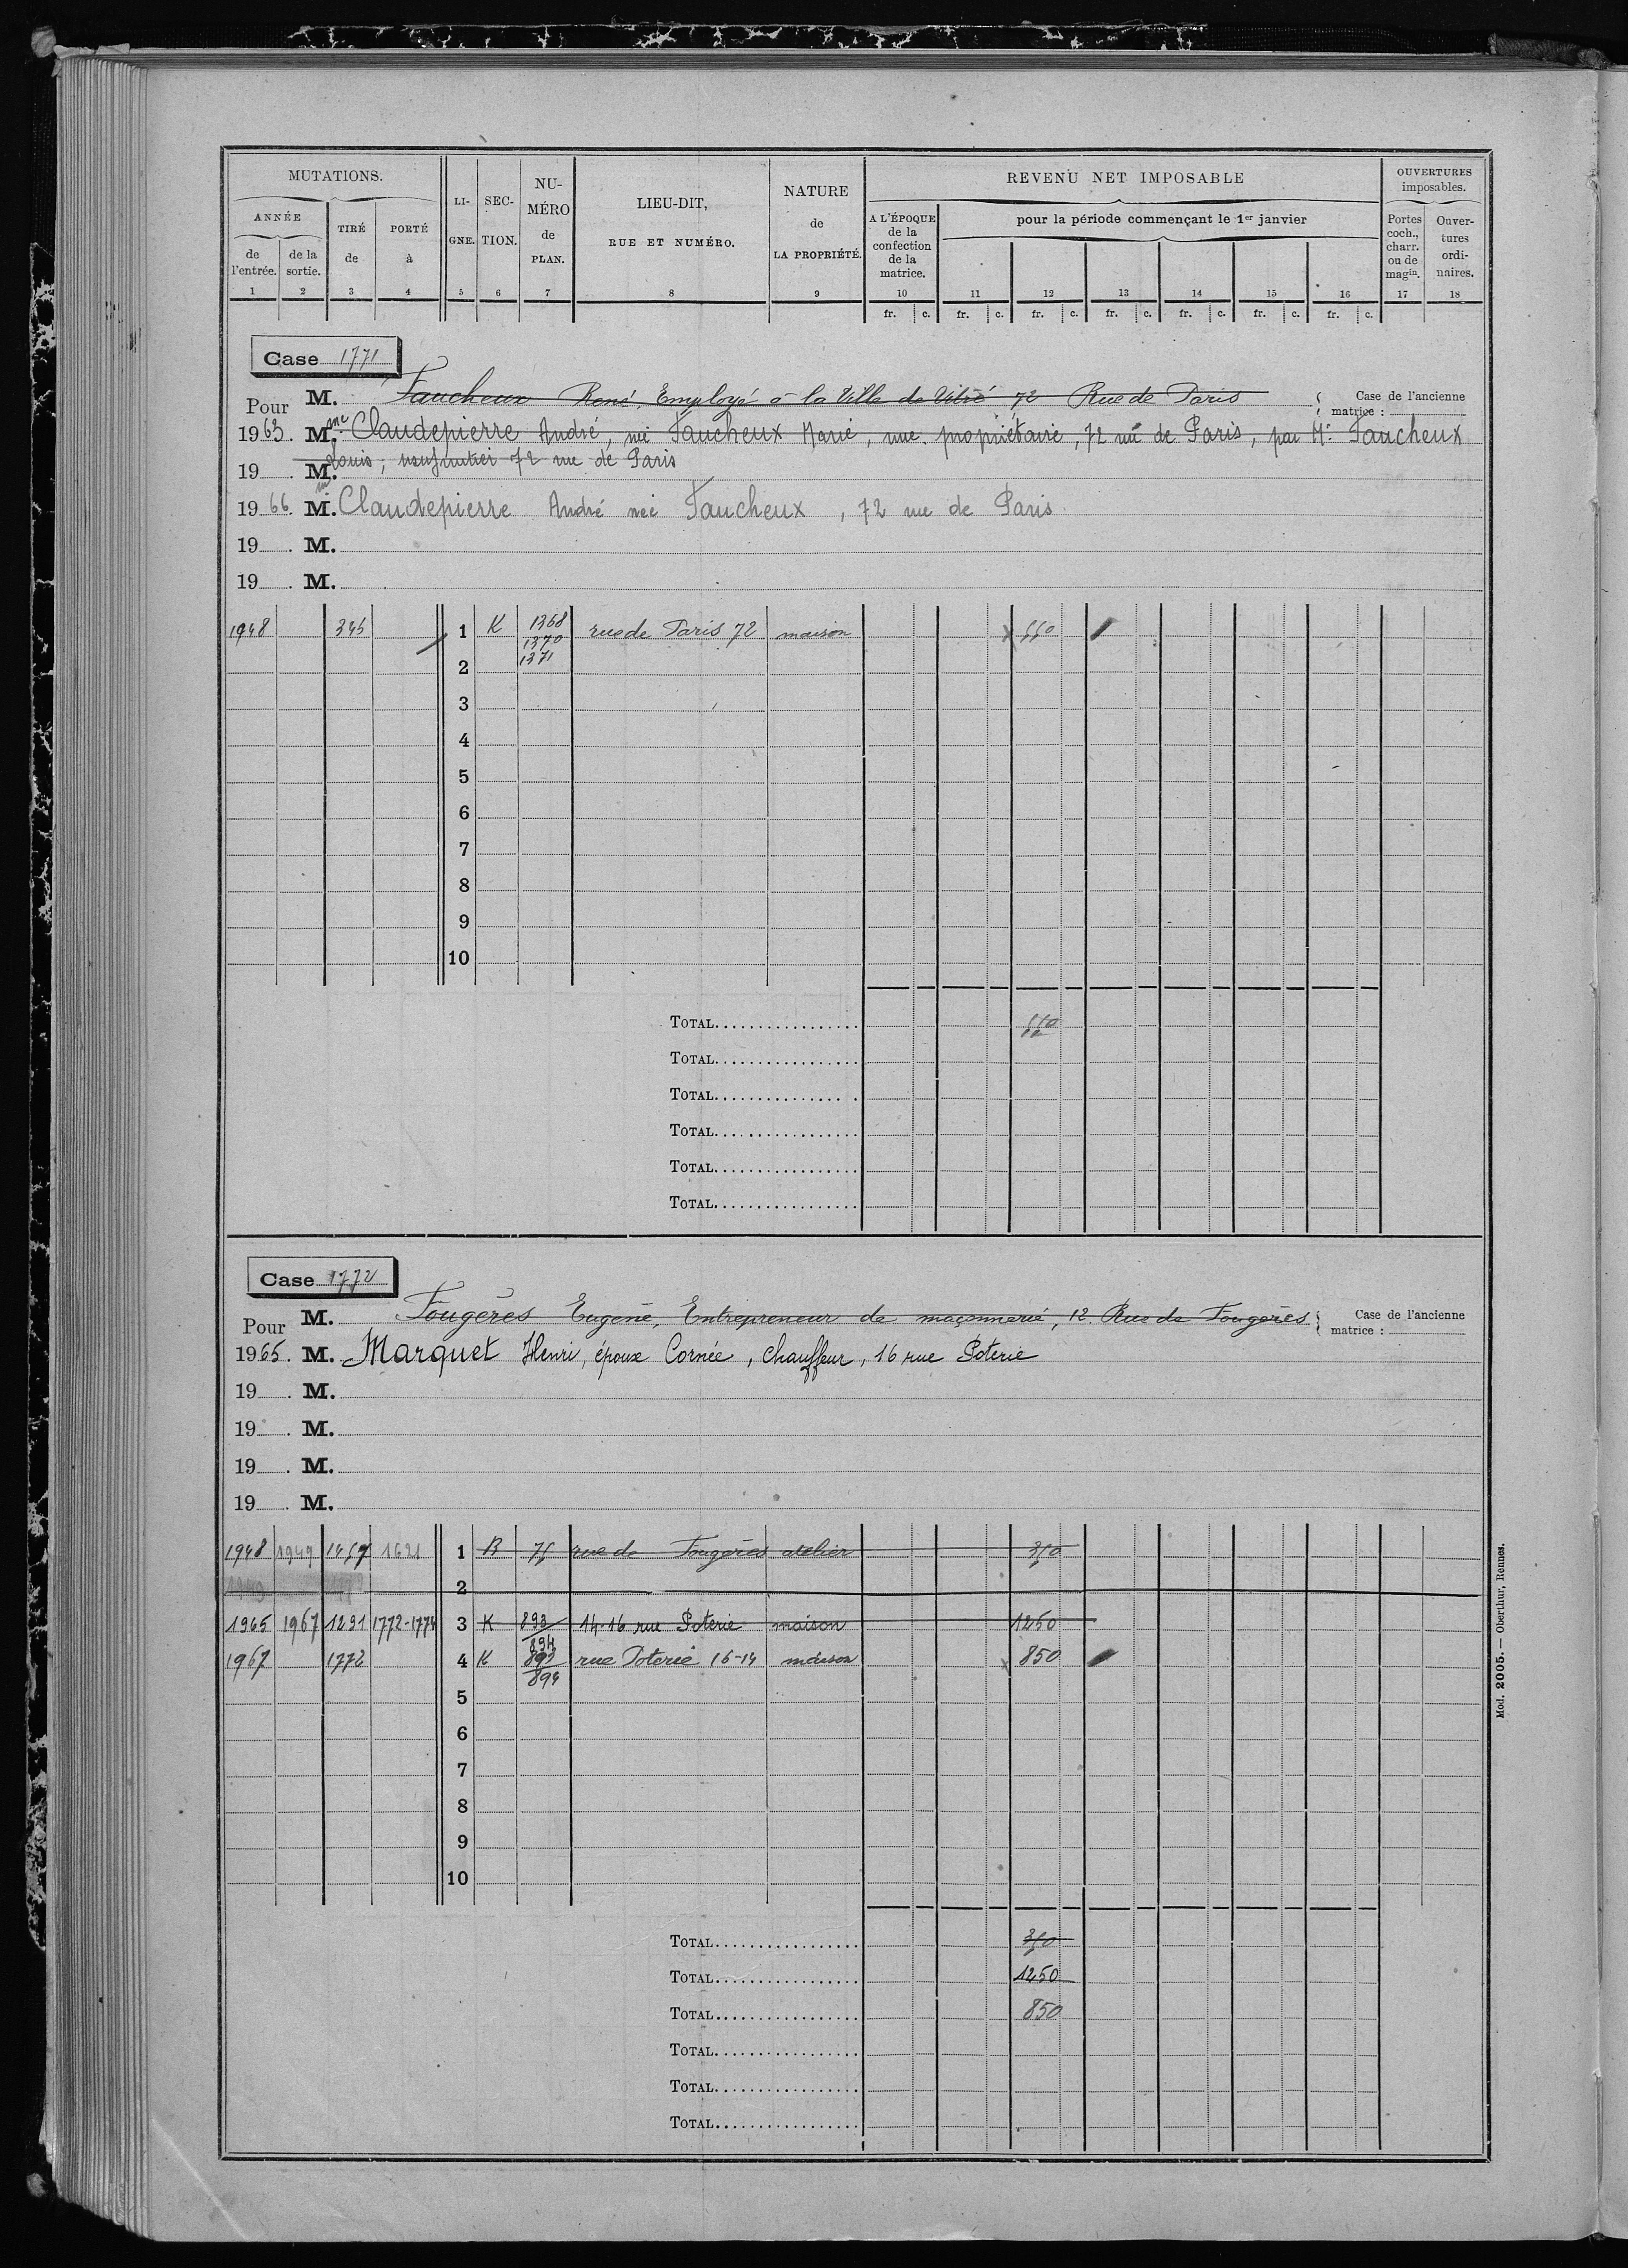 MUTATIONS.
ANNÉE
de l'entrée.
de la sortie.
TIRÉ de
PORTÉ à
LI-GNE.
SEC-TION.
NU-MÉRO de PLAN.
LIEU-DIT, RUE ET NUMÉRO.
NATURE de LA PROPRIÉTÉ.
REVENU NET IMPOSABLE
A L'ÉPOQUE de la confection de la matrice.
pour la période commençant le 1er janvier
OUVERTURES imposables.
Portes coch., charr. ou de magin.
Ouver-tures ordi-naires.
1 2 3 4 5 6 7 8 9 10 11 12 13 14 15 16 17 18
fr. c. fr. c. fr. c. fr. c. fr. c. fr. c. fr. c.
Case 1771
Pour M. Faucheux René, Employé à la Ville de Vitré 72 Rue de Paris
Case de l'ancienne matrice :
1963. Mme Claudepierre André, née Faucheux Marie, nue propriétaire, 72 rue de Paris, par Mr Faucheux
19 . M. Louis, usufruitier 72 rue de Paris
1966. Mme Claudepierre André née Faucheux, 72 rue de Paris
19 . M.
19 . M.
1948 345 1 K 1368 1370 1371 rue de Paris 72 maison 550
2
3
4
5
6
7
8
9
10
TOTAL 550
TOTAL
TOTAL
TOTAL
TOTAL
TOTAL
Case 1772
Pour M. Fougères Eugène, Entrepreneur de maçonnerie, 12 Rue de Fougères
Case de l'ancienne matrice :
1965. M. Marquet Henri, époux Cornée, chauffeur, 16 rue Poterie
19 . M.
19 . M.
19 . M.
19 . M.
1948 1949 1457 1621 1 R 75 rue de Fougères atelier 350
2
1965 1967 1291 1772-1774 3 K 893 894 14-16 rue Poterie maison 1250
1967 1772 4 K 893 894 rue Poterie 16-14 maison 850
5
6
7
8
9
10
TOTAL 350
TOTAL 1250
TOTAL 850
TOTAL
TOTAL
TOTAL
Mod. 2005. — Oberthur, Rennes.